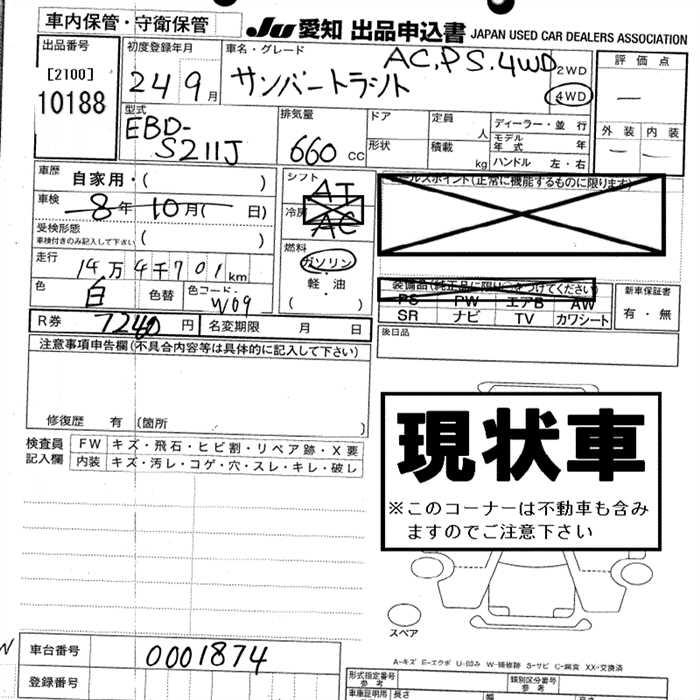 車内保管・守衛保管
JU 愛知 出品申込書 JAPAN USED CAR DEALERS ASSOCIATION
出品番号
[2100]
10188
初度登録年月
24 9月
車名・グレード
サンバートラント
AC,PS.4WD
2WD
4WD
評価点
—
外装 内装
— —
型式
EBD-
S211J
排気量
660 CC
ドア
形状
定員 人
積載 kg
ディーラー・並行
モデル年式 年
ハンドル 左・右
車歴 自家用・( )
車検 8年 10月( 日)
受検形態
車検付きのみ記入して下さい ( )
走行 14万4千701km
色 白 色替 色コード W09
シフト AT
冷房 AC
燃料
ガソリン
軽油
( )
セールスポイント(正常に機能するものに限ります)
装備品(純正品に限り○をつけてください)
PS PW エアB AW
SR ナビ TV カワシート
新車保証書
有・無
後日品
R券 7240 円 名変期限 月 日
注意事項申告欄(不具合内容等は具体的に記入して下さい)
修復歴 有 (箇所 )
検査員
記入欄
FW キズ・飛石・ヒビ割・リペア跡・X要
内装 キズ・汚レ・コゲ・穴・スレ・キレ・破レ
現状車
※このコーナーは不動車も含み
ますのでご注意下さい
スペア
A-キズ E-エクボ U-凹み W-補修跡 S-サビ C-腐食 XX-交換済
車台番号 0001874
登録番号
形式指定番号
参考
類別区分番号
参考
車庫証明用
参考
長さ
幅
高さ